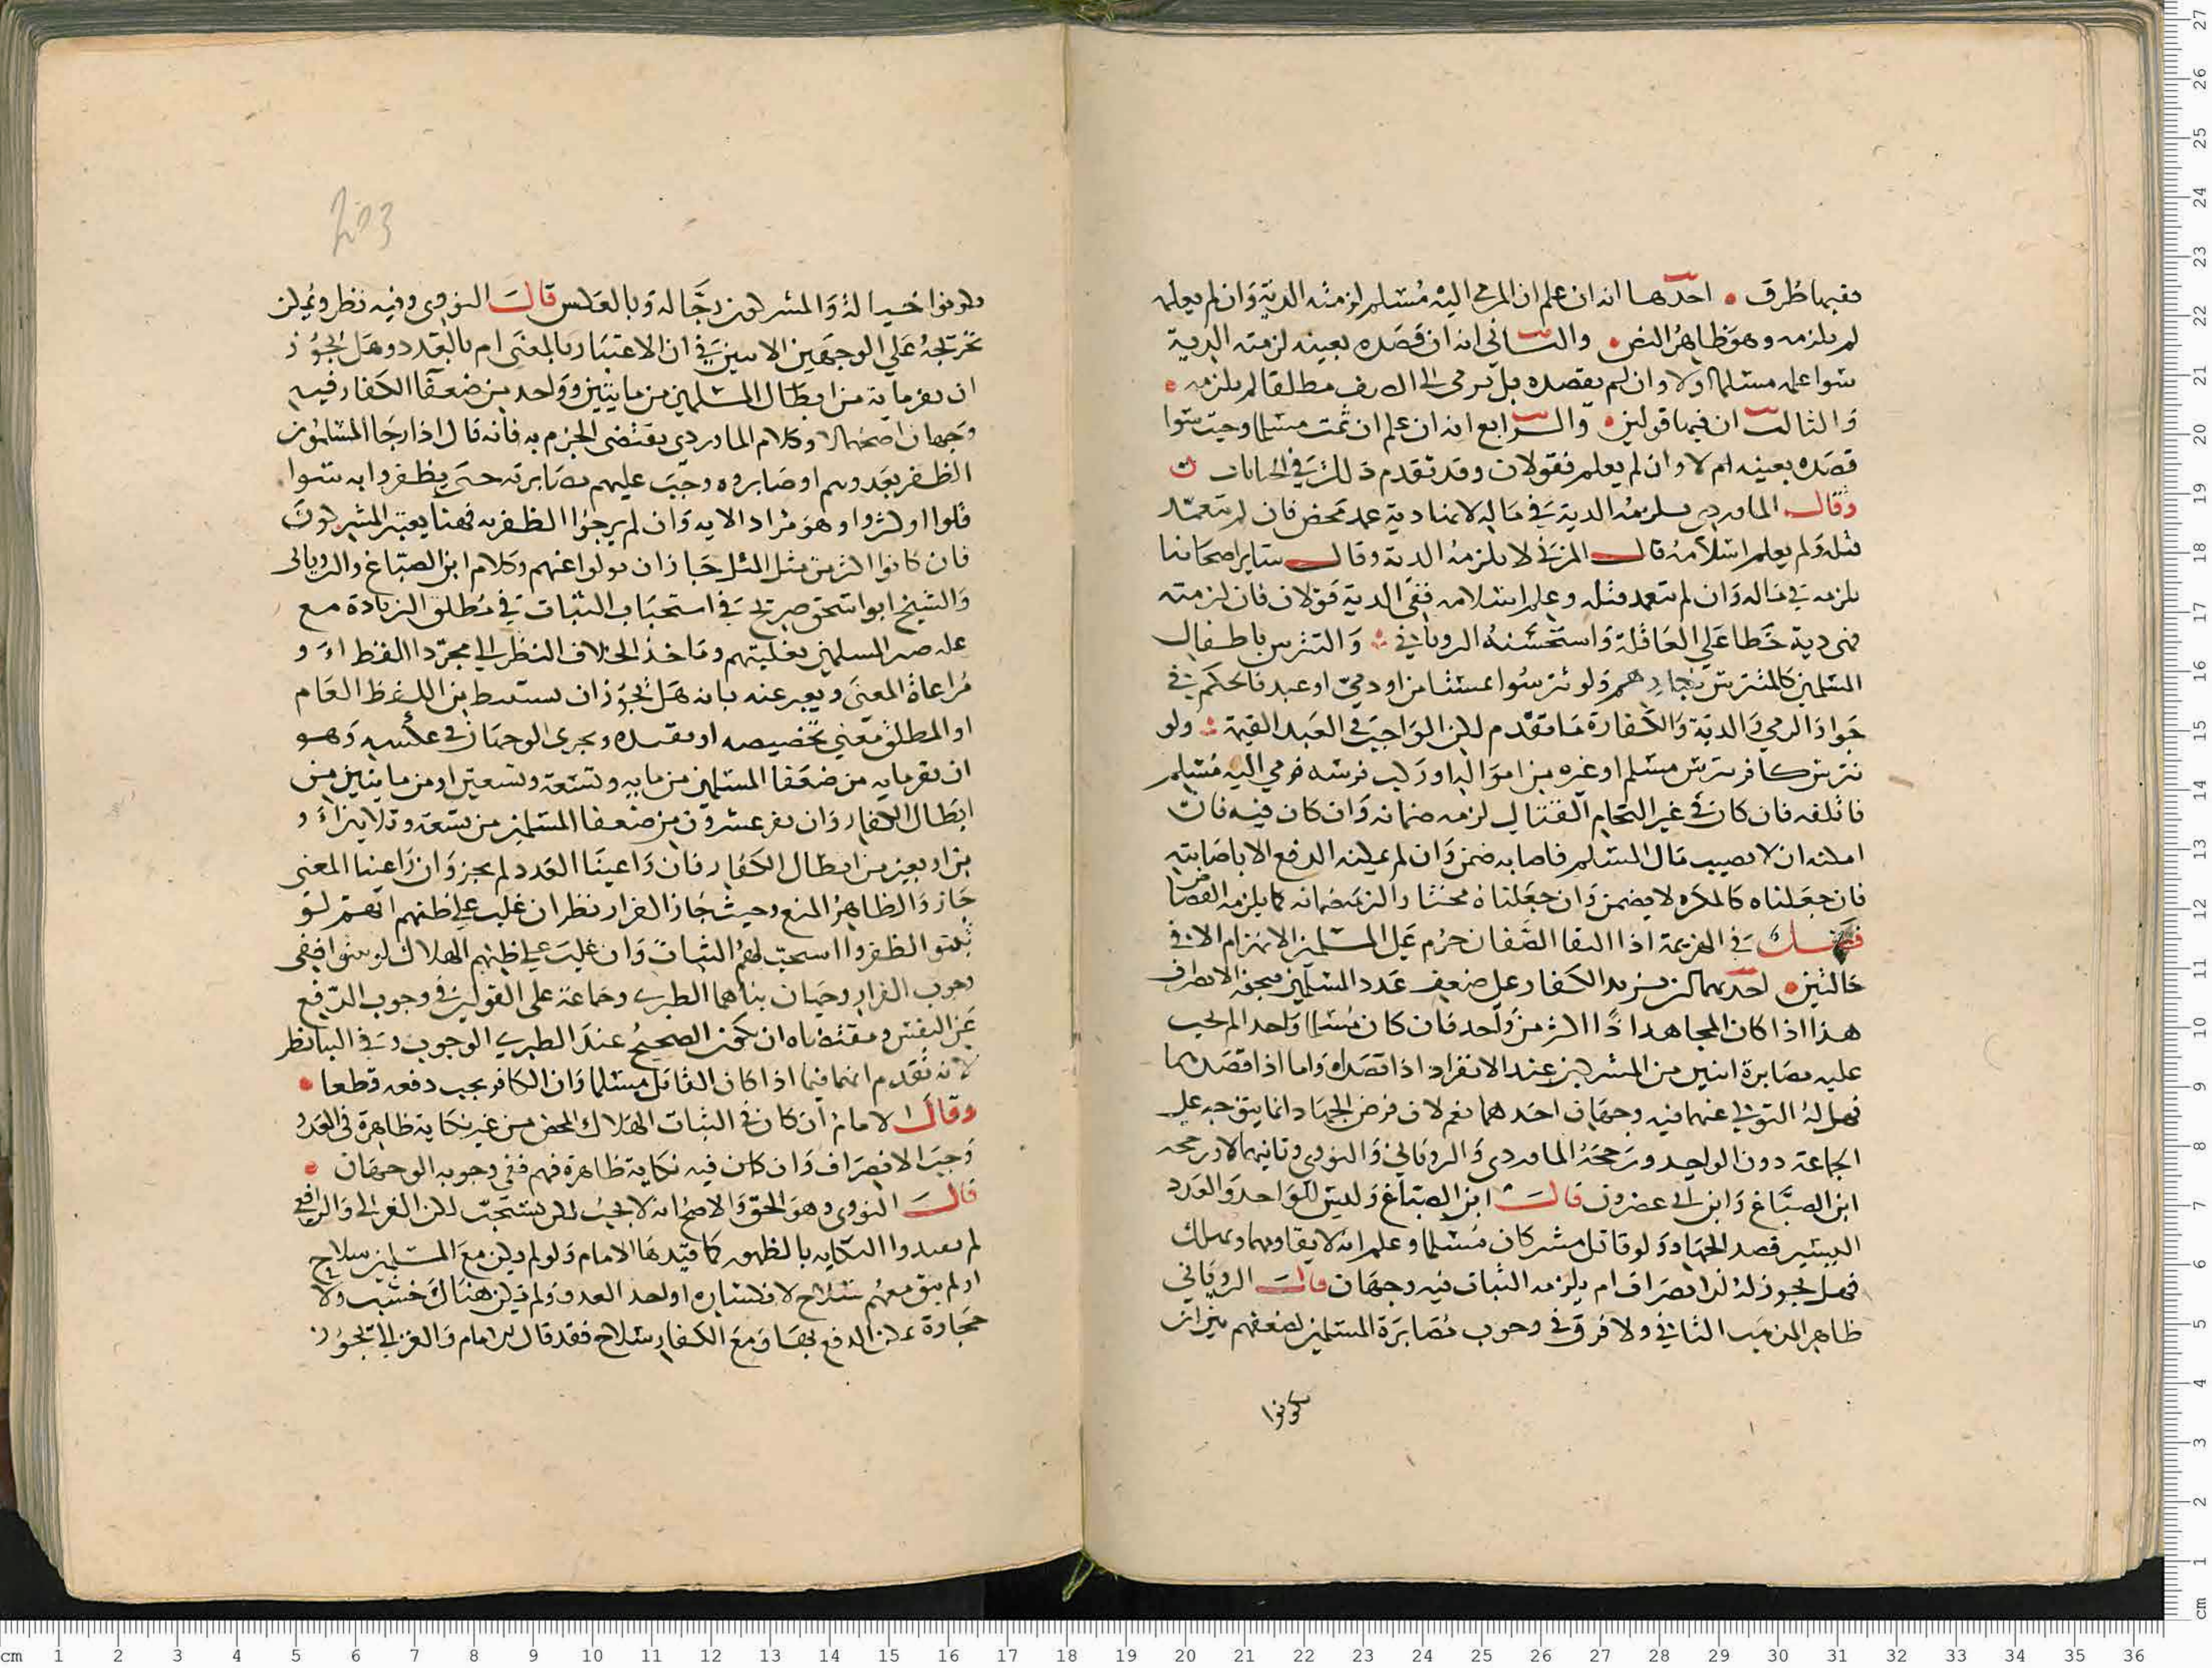 ففيها طرق احدها انه ان علم ان المرمي اليه مسلم لزمته الدية وان لم يعلمه
لم يلزمه وهو ظاهر النص والثاني انه ان قصده بعينه لزمته الدية
سوا علمه مسلما اولا وان لم يقصده بل رمى الى الصف مطلقا لم يلزمه
والثالث ان فيها قولين والرابع انه ان علم ان ثمت مسلما وجبت سوا
قصده بعينه ام لا وان لم يعلم فقولان وقد تقدم ذلك في الجنايات
وقال الماوردي يلزمه الدية في ماله لانها دية عمد محض فان لم يتعمد
قتله ولم يعلم اسلامه قال المزني لا يلزمه الدية وقال ساير اصحابنا
يلزمه في ماله وان لم يتعمد قتله وعلم اسلامه ففي الدية قولان فان لزمته
فهي دية خطا على العاقلة واستحسنه الروياني والتترس باطفال
المسلمين كالتترس برجالهم ولو تترسوا بمستامن او ذمي او عبد فالحكم في
جواز الرمي والدية والكفارة ما تقدم لكن الواجب في العبد القيمة ولو
تترس كافر بترس مسلم او غيره من امواله او ركب فرسه فرمى اليه مسلم
فاتلفه فان كان في غير التحام القتال لزمه ضمانه وان كان فيه فان
امكنه ان لا يصيب مال المسلم فاصابه ضمن وان لم يمكنه الدفع الا باصابته
فان جعلناه كالمكره لا يضمن وان جعلناه مختارا لزمه ضمانه كما يلزمه القصاص
فصل في الهزيمة اذا التقا الصفان حرم على المسلمين الانهزام الا في
حالتين احديهما ان يزيد الكفار على ضعف عدد المسلمين فيجوز الانصراف
هذا اذا كان المجاهد اكثر من واحد فان كان مسلما واحدا لم يجب
عليه مصابرة اثنين من المشركين عند الانفراد اذا قصداه واما اذا قصدهما
فهل له التولي عنهما فيه وجهان احدهما نعم لان فرض الجهاد انما يتوجه على
الجماعة دون الواحد ورجحه الماوردي والروياني والنووي وثانيهما لا ورجحه
ابن الصباغ وابن ابي عصرون قال ابن الصباغ وليس للواحد والعدد
اليسير قصد الجهاد ولو قاتل مشركان مسلما وعلم انه لا يقاومهما ويهلك
فهل يجوز له الانصراف ام يلزمه الثبات فيه وجهان قال الروياني
ظاهر المذهب الثاني ولا فرق في وجوب مصابرة المسلمين لضعفهم بين ان
يكونوا
203
يكونوا خيالة والمشركون رجالة وبالعكس قال النووي وفيه نظر ويمكن
تخريجه على الوجهين الاتيين في ان الاعتبار بالمعنى ام بالعدد وهل يجوز
ان يفر ماية من ابطال المسلمين من مايتين وواحد من ضعفا الكفار فيه
وجهان اصحهما لا وكلام الماوردي يقتضى الجزم به فانه قال اذا رجا المسلمون
الظفر بعدوهم اوصابروه وجب عليهم مصابرته حتى يظفروا به سوا
قلوا او كثروا وهو مراد الاية وان لم يرجوا الظفر به فهنا يعتبر المشركون
فان كانوا اكثر من مثل المثل جاز ان يولوا عنهم وكلام ابن الصباغ والروياني
والشيخ ابو اسحق صريح في استحباب الثبات في مطلق الزيادة مع
غلبة المسلمين بغلبتهم وماخذ الخلاف النظر الى مجرد اللفظ او
مراعاة المعنى ويعبر عنه بانه هل يجوز ان يستنبط من اللفظ العام
او المطلق معني تخصيصه او تقييده ويجرى الوجهان في عكسه وهو
ان يفر ماية من ضعفا المسلمين من ماية وتسعة وتسعين او من مايتين من
ابطال الكفار وان يفر عشرون من ضعفا المسلمين من تسعة وثلاثين او
من اربعين من ابطال الكفار فان راعينا العدد لم يجز وان راعينا المعنى
جاز والظاهر المنع وحيث جاز الفرار نظر ان غلب على ظنهم انهم لو
ثبتوا لظفروا استحب لهم الثبات وان غلب على ظنهم الهلاك لو ثبتوا ففي
وجوب الفرار وجهان بناهما الطبري وجماعة على القولين في وجوب الدفع
عن النفس ومقتضاه ان يكون الصحيح عند الطبري الوجوب وفي البنا نظر
لانه تقدم انهما فيما اذا كان القاتل مسلما وان الكافر يجب دفعه قطعا
وقال الامام ان كان في الثبات الهلاك المحض من غير نكاية ظاهرة في العدو
وجب الانصراف وان كان فيه نكاية ظاهرة فيهم ففي وجوبه الوجهان
قال النووي وهو الحق والاصح انه لا يجب لكن يستحب لكن الغزالي والرافعي
لم يقيدوا النكاية بالظهور كما قيدها الامام ولو لم يكن مع المسلمين سلاح
او لم يبق معهم سلاح لانكساره او لحد العدو ولم يكن هناك خشب ولا
حجارة يمكن الدفع بها ومع الكفار سلاح فقد قال الامام والغزالي يجوز